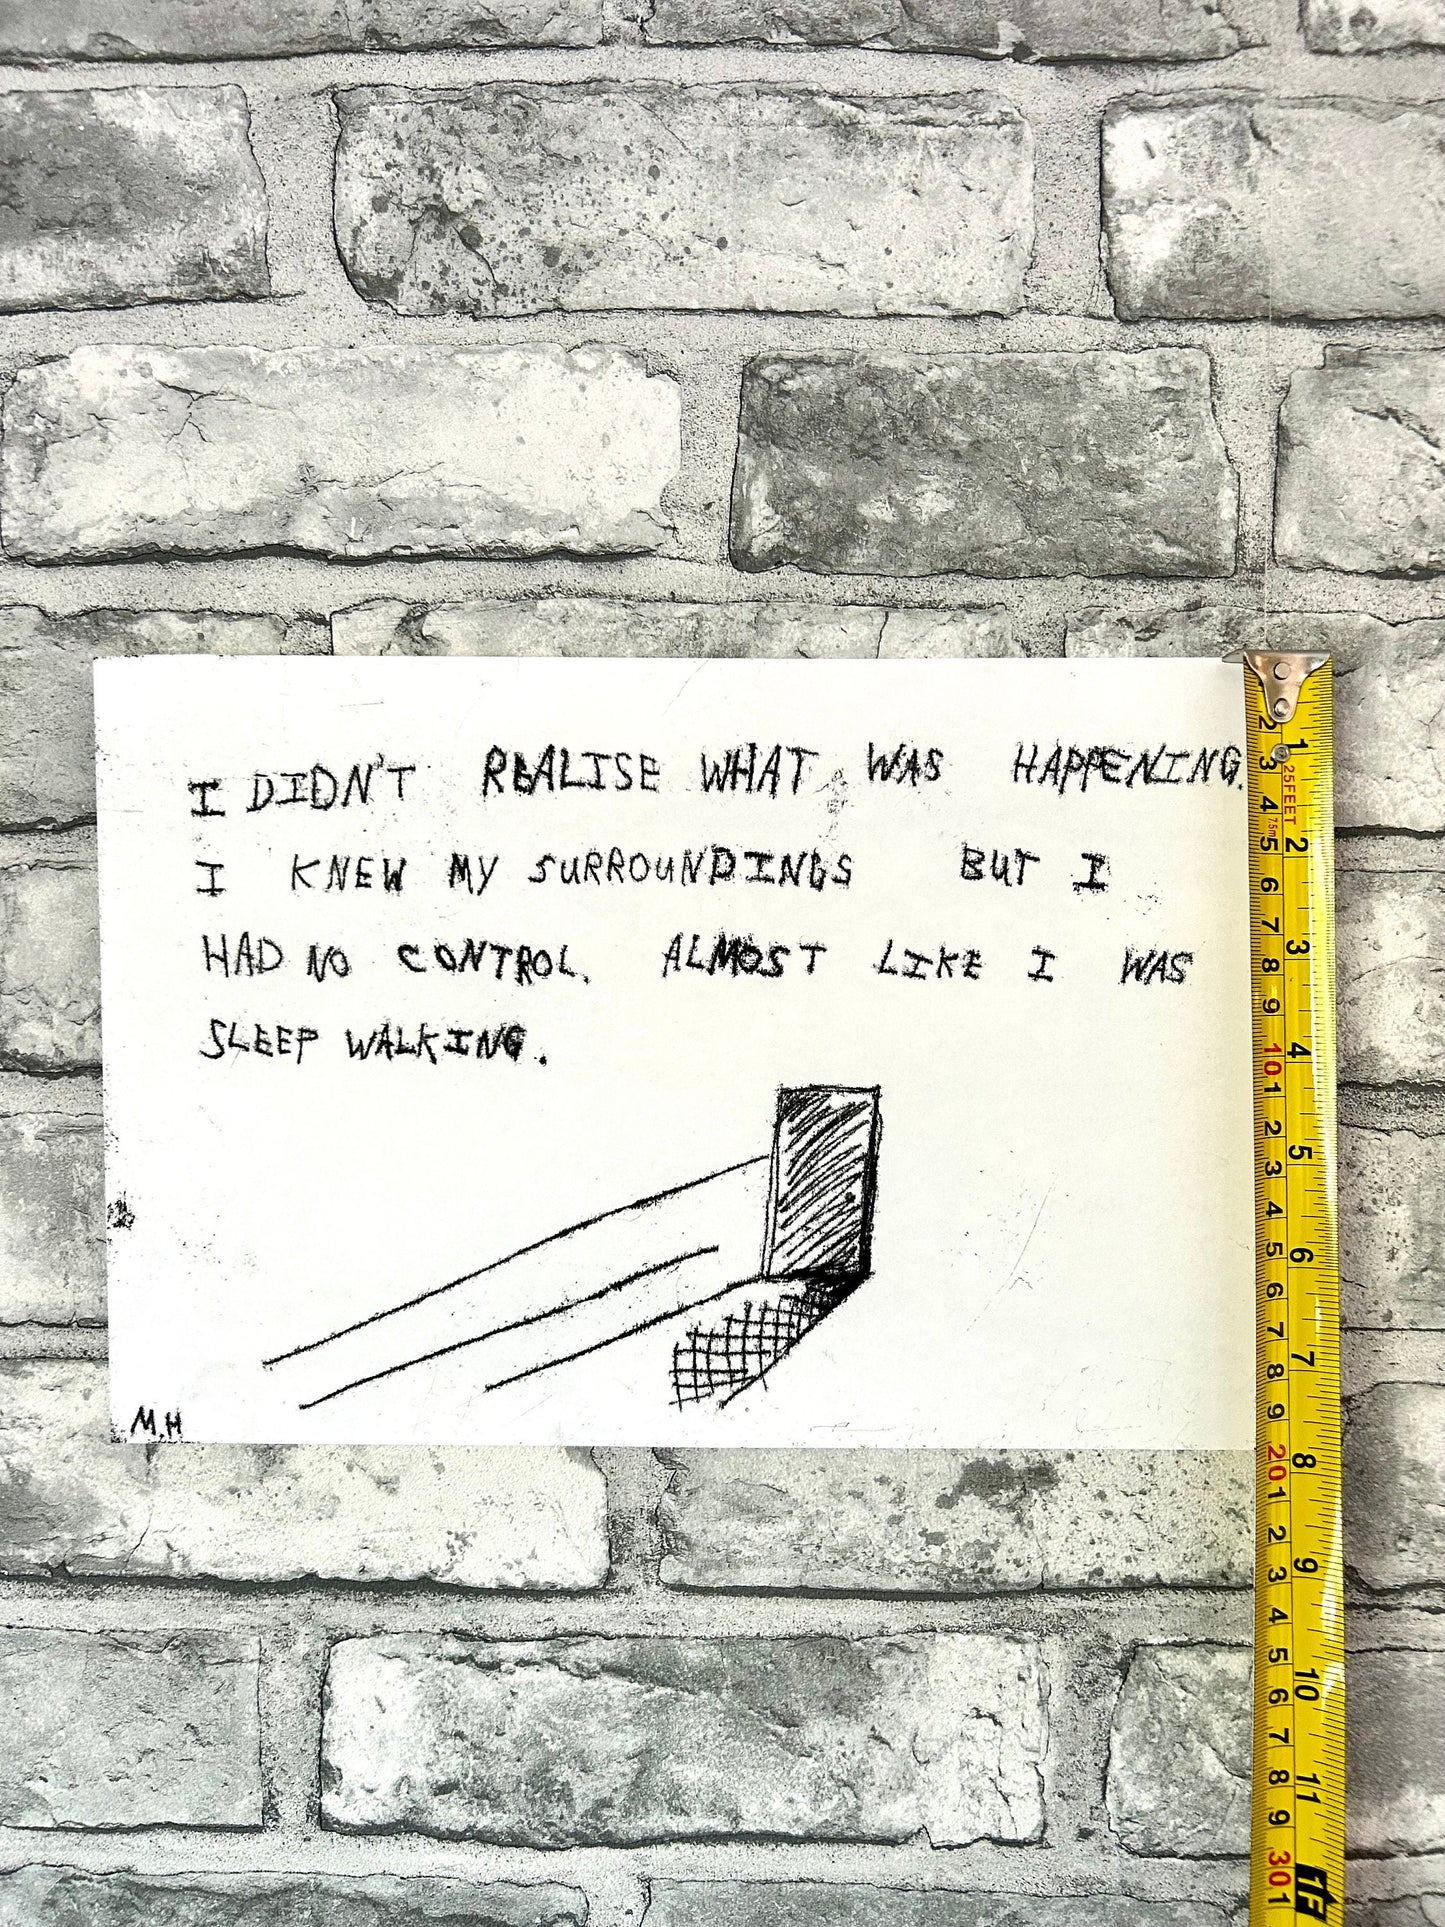 I DIDN'T REALISE WHAT WAS HAPPENING.
I KNEW MY SURROUNDINGS BUT I
HAD NO CONTROL. ALMOST LIKE I WAS
SLEEP WALKING.
M.H
2
3
4
5
6
7
8
9
10
1
2
3
4
5
6
7
8
9
20
1
2
3
4
5
6
7
8
9
30
1
25FEET
7.5m
1
2
3
4
5
6
7
8
9
10
11
1F